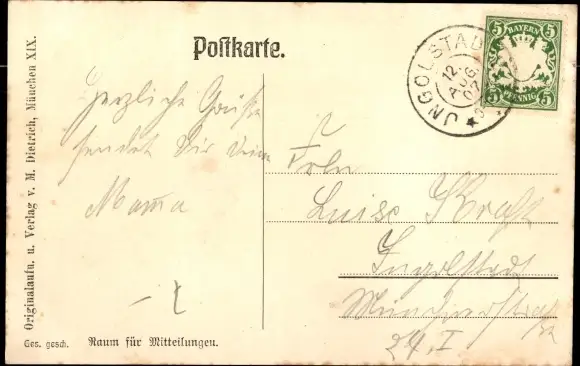 Postkarte.
Originalaufn. u. Verlag v. M. Dietrich, München XIX.
Herzliche Grüße
sendet Dir Deine
Mama
INGOLSTADT
12
AUG
07
5 BAYERN 5
5 PFENNIG 5
Frln
Luise Kraft
Ingolstadt
Münchnerstraße
24. I
Ges. gesch.
Raum für Mitteilungen.